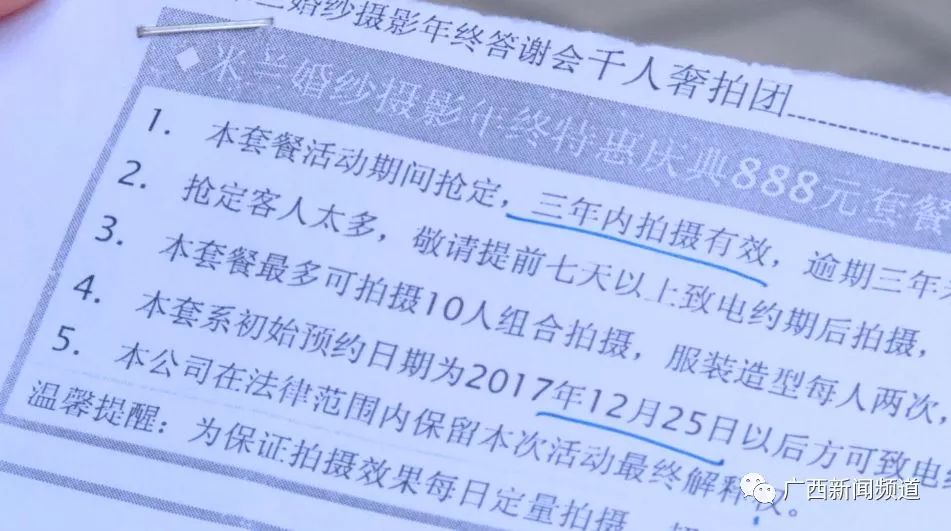 兰婚纱摄影年终答谢会千人奢拍团
◆米兰婚纱摄影年终特惠庆典888元套餐
1. 本套餐活动期间抢定，三年内拍摄有效，逾期三年
2. 抢定客人太多，敬请提前七天以上致电约期后拍摄，
3. 本套餐最多可拍摄10人组合拍摄，服装造型每人两次，
4. 本套系初始预约日期为2017年12月25日以后方可致电
5. 本公司在法律范围内保留本次活动最终解释权。
温馨提醒：为保证拍摄效果每日定量拍摄
广西新闻频道